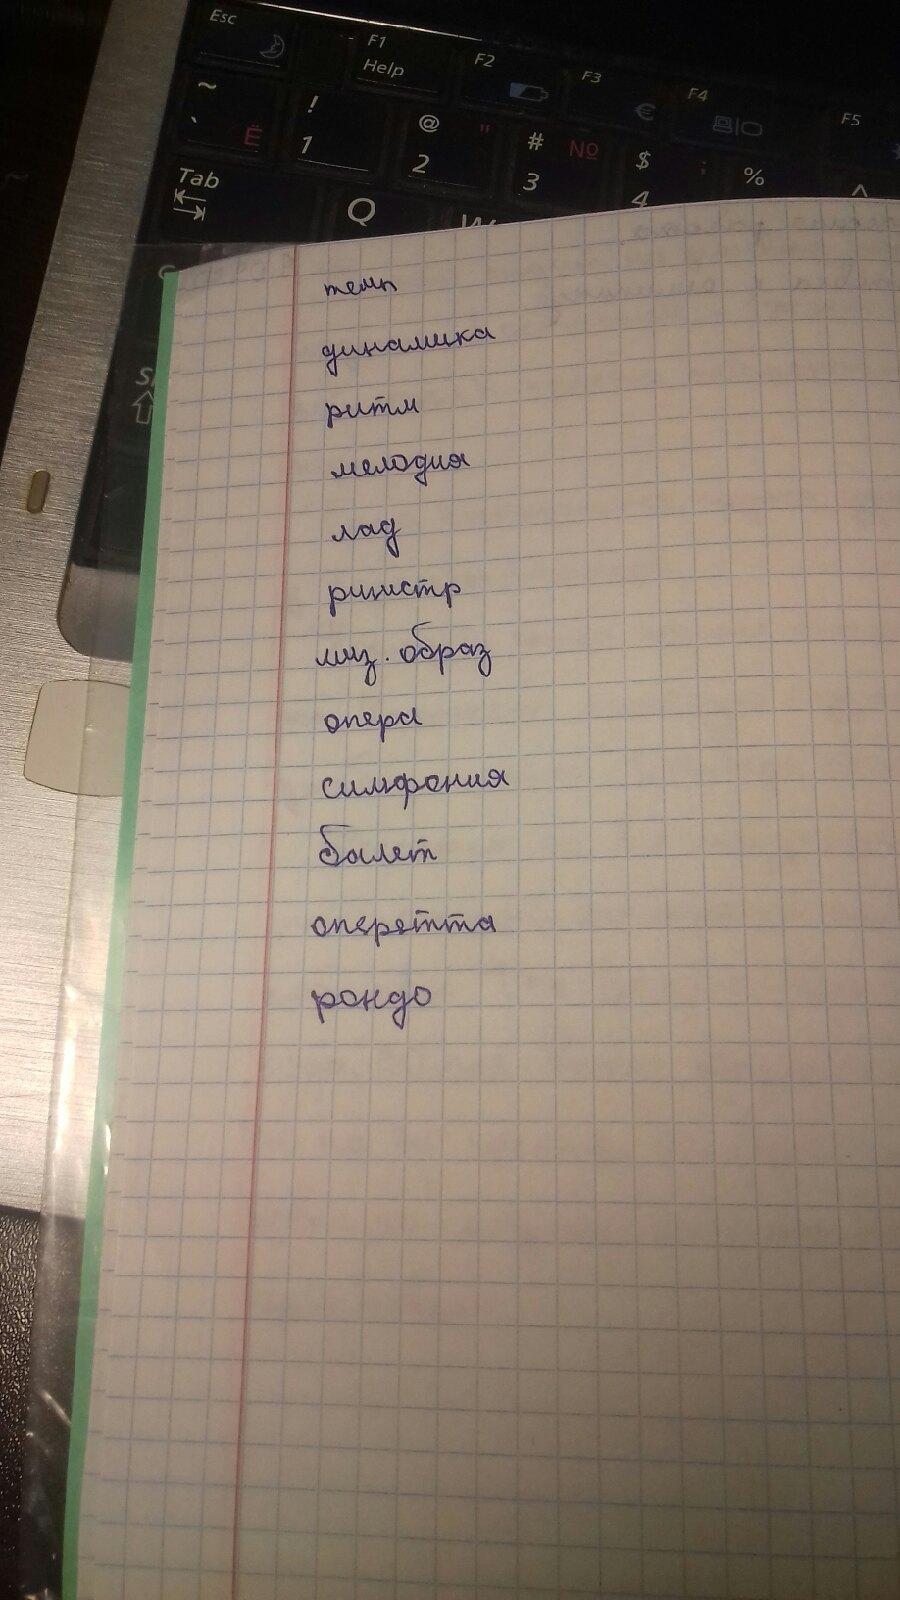 Esc
F1 Help F2 F3 € F4 F5
~ ` Ё ! 1 @ " 2 # № 3 $ ; 4 % ^
Tab Q W
темп
динамика
ритм
мелодия
лад
ригистр
муз. образ
опера
симфония
балет
оперетта
рондо